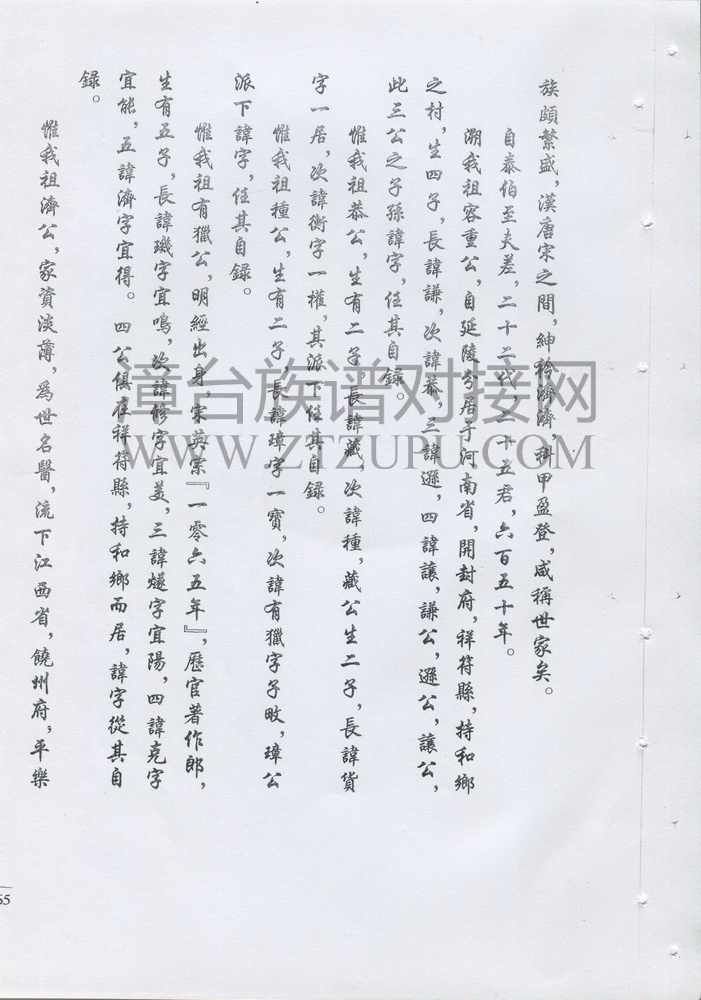 族頗繁盛，漢唐宋之間，紳衿濟濟，科甲盈登，咸稱世家矣。
自泰伯至夫差，二十二代，二十五君，六百五十年。
溯我祖容重公，自延陵分居于河南省，開封府，祥符縣，持和鄉
之村，生四子，長諱謙，次諱恭，三諱遜，四諱讓，謙公，遜公，讓公，
此三公之子孫諱字，任其自錄。
惟我祖恭公，生有二子，長諱藏，次諱種，藏公生二子，長諱貨
字一居，次諱衡字一權，其派下任其自錄。
惟我祖種公，生有二子，長諱璋字一寶，次諱有獵字子畋，璋公
派下諱字，任其自錄。
惟我祖有獵公，明經出身，宋英宗『一零六五年』，歷官著作郎，
生有五子，長諱璣字宜鳴，次諱修字宜美，三諱燧字宜陽，四諱克字
宜能，五諱濟字宜得。四公俱在祥符縣，持和鄉而居，諱字從其自
錄。
惟我祖濟公，家資淡薄，為世名醫，流下江西省，饒州府，平樂
璋台族谱对接网
WWW.ZTZUPU.COM
65